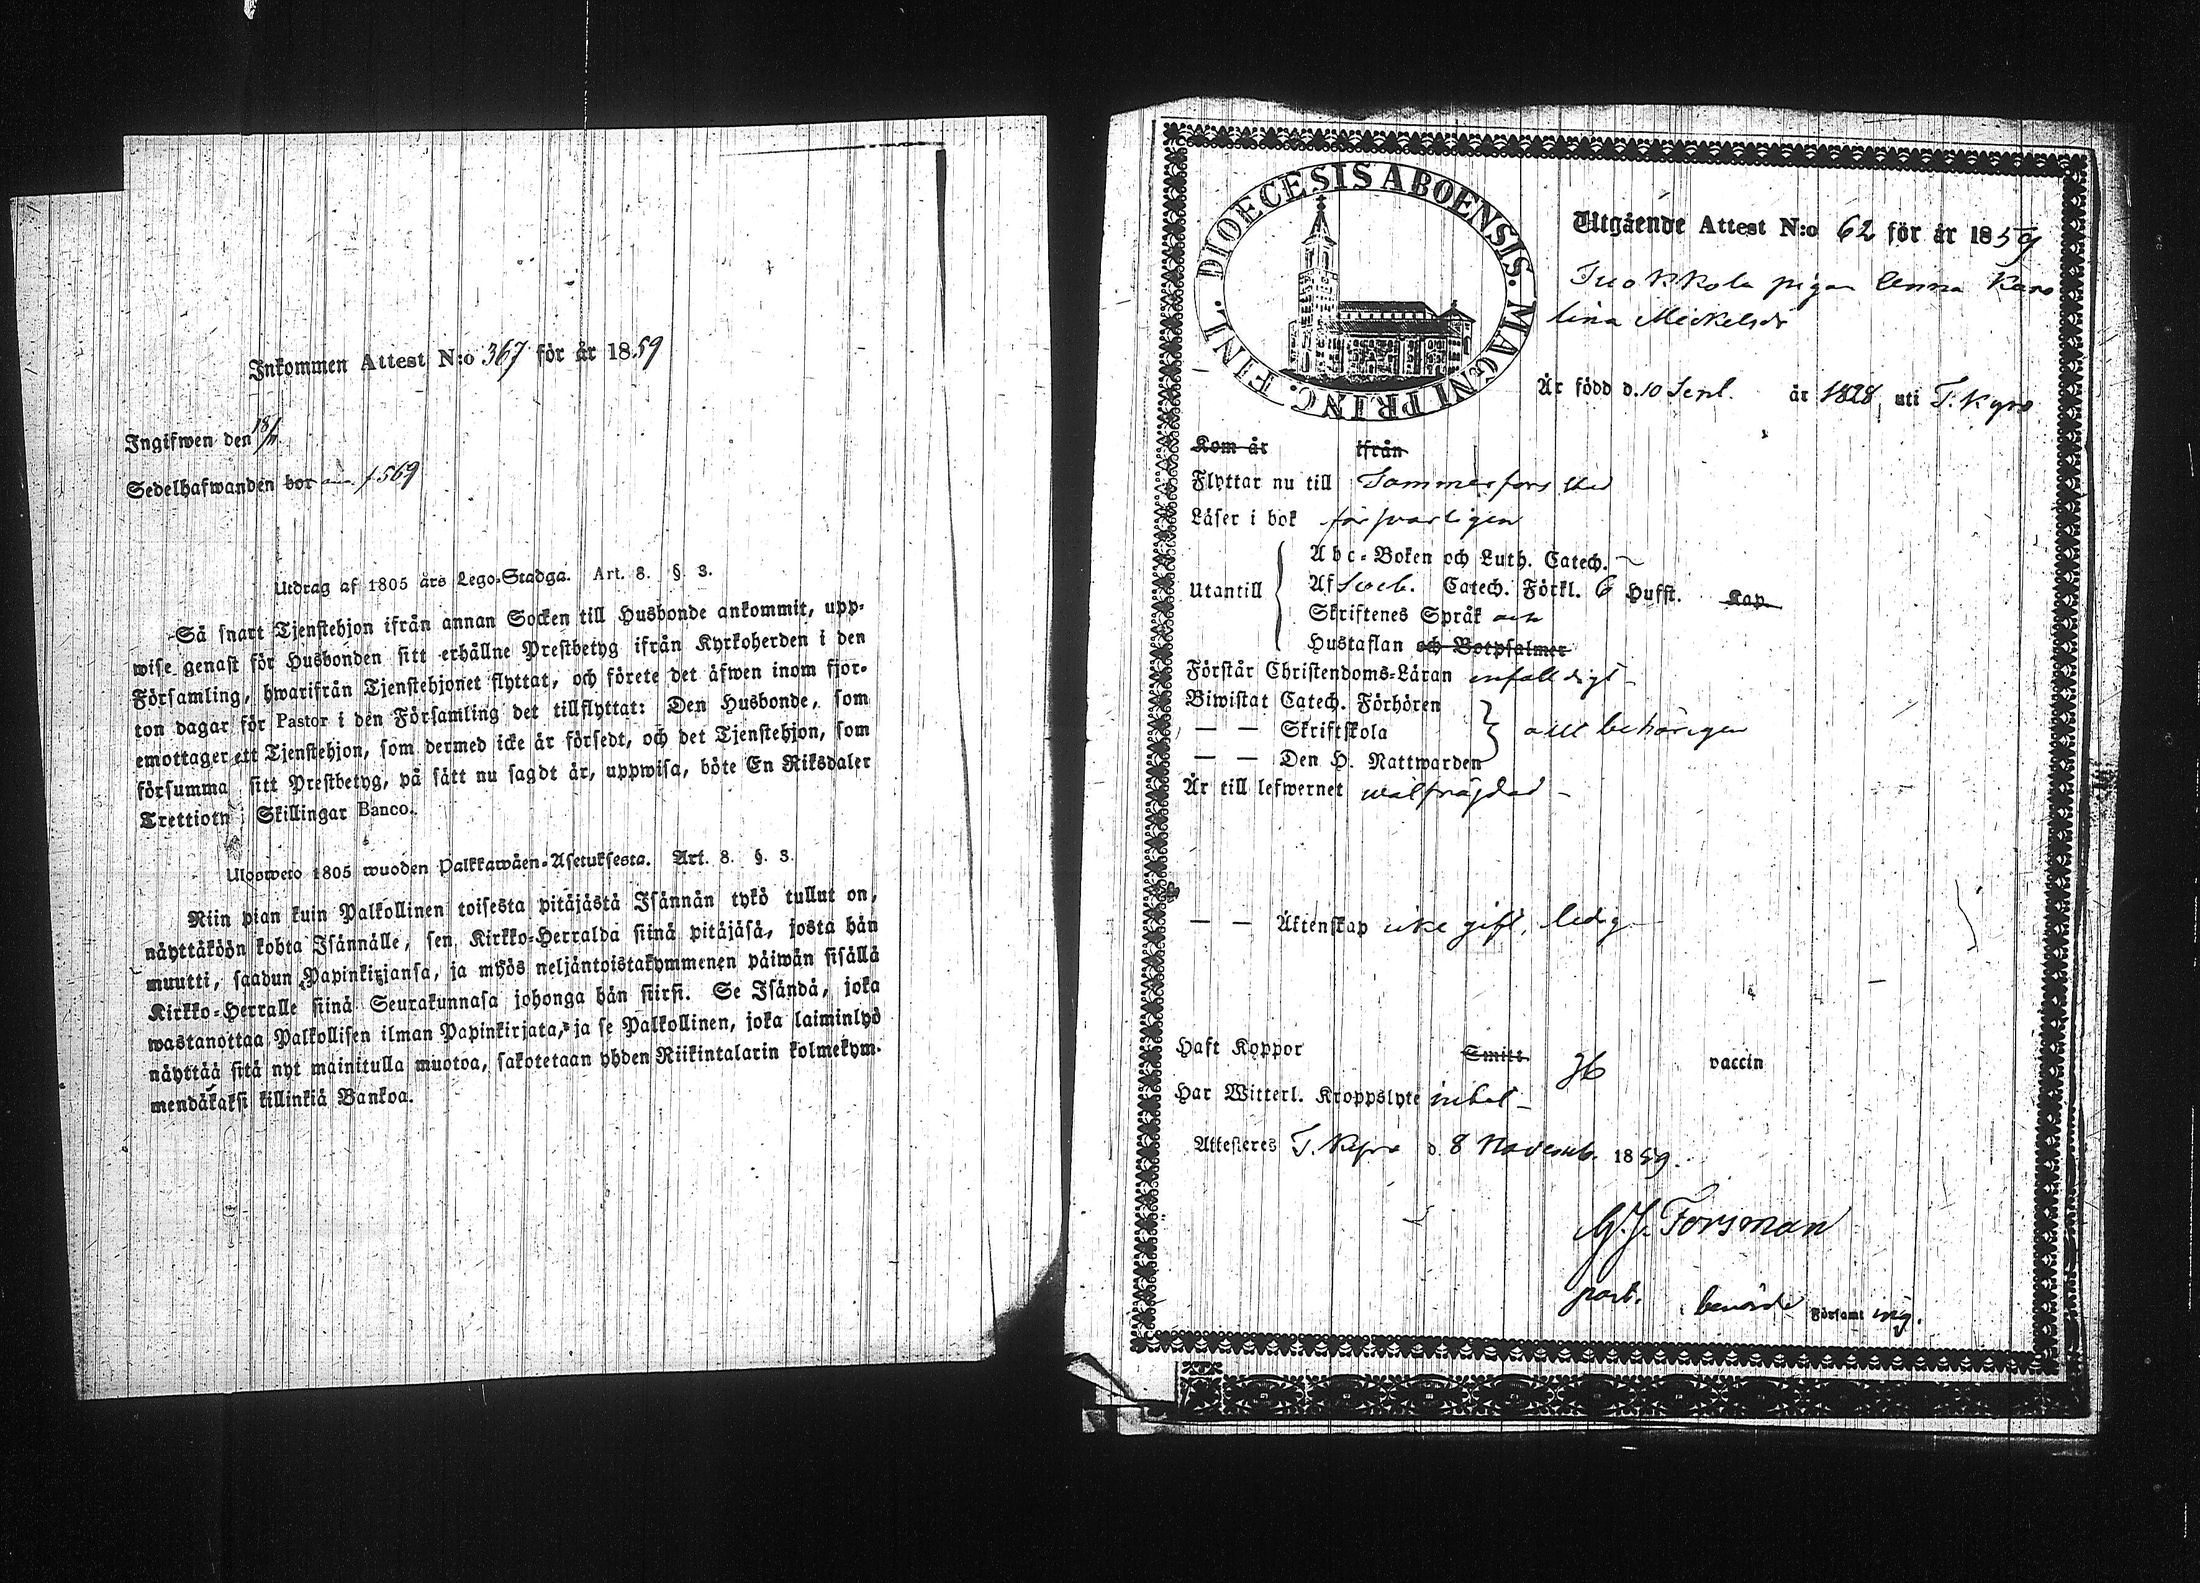 Inkommen Attest N:o 367 för år 1859
Ingifwen den 18/11
Sedelhafwanden bor 1569
Utdrag af 1805 års Lego-Stadga. Art. 8. §. 3.
Så snart Tjenstehjon ifrån annan Socken till Husbonde ankommit, upp-
wise genast för Husbonden sitt erhållne Prestbetyg ifrån Kyrkoherden i den
Församling, hwarifrån Tjenstehjonet flyttat, och förete det äfwen inom fjor-
ton dagar för Pastor i den Församling det tillflyttat: Den Husbonde, som
emottager ett Tjenstehjon, som dermed icke är försedt, och det Tjenstehjon, som
försumma sitt Prestbetyg, på sätt nu sagdt är, uppwisa, böte En Riksdaler
Trettiotn Skillingar Banco.
Ulosweto 1805 wuoden Palkkawäen-Asetuksesta. Art. 8. §. 3.
Niin pian kuin Palkollinen toisesta pitäjästä Isännän tykö tullut on,
näyttäköön kohta Isännälle, sen Kirkko-Herralda siinä pitäjäsä, josta hän
muutti, saadun Papinkirjansa, ja myös neljäntoistakymmenen päiwän sisällä
Kirkko-Herralle siinä Seurakunnasa johonga hän siirsi. Se Isändä, joka
wastanottaa Palkollisen ilman Papinkirjata, ja se Palkollinen, joka laiminlyö
näyttää sitä nyt mainitulla muotoa, sakotetaan yhden Riikintalarin kolmekym-
mendäkaksi killinkiä Bankoa.
DIOECESIS ABOENSIS. MAGNI PRINC. FINL.
Utgående Attest N:o 62 för år 1859
pigan Anna Karo
lina Mickelsdr
Är född d. 10 Sept. år 1828, uti T. Kyro
Kom år ifrån
Flyttar nu till Tammerfors stad
Läser i bok försvarligen
Utantill
Abc-Boken och Luth. Catech. ~
Af Sveb. Catech. Förkl. 6 Hufst. Kap
Skriftenes Språk och
Hustaflan och Botpsalmer
Förstår Christendoms-Läran enfalldigt
Biwistat Catech. Förhören
— — Skriftskola
— — Den H. Nattwarden
allt behörigen
Är till lefwernet wälfrägdad
— — Äktenskap icke gift, ledig
Haft Koppor Smitt vaccin
Har Witterl. Kroppslyte intet
Attesteres T. Kyro d. 8 Novemb. 1859.
G. J. Forsman
past. i berörde Församl ing.